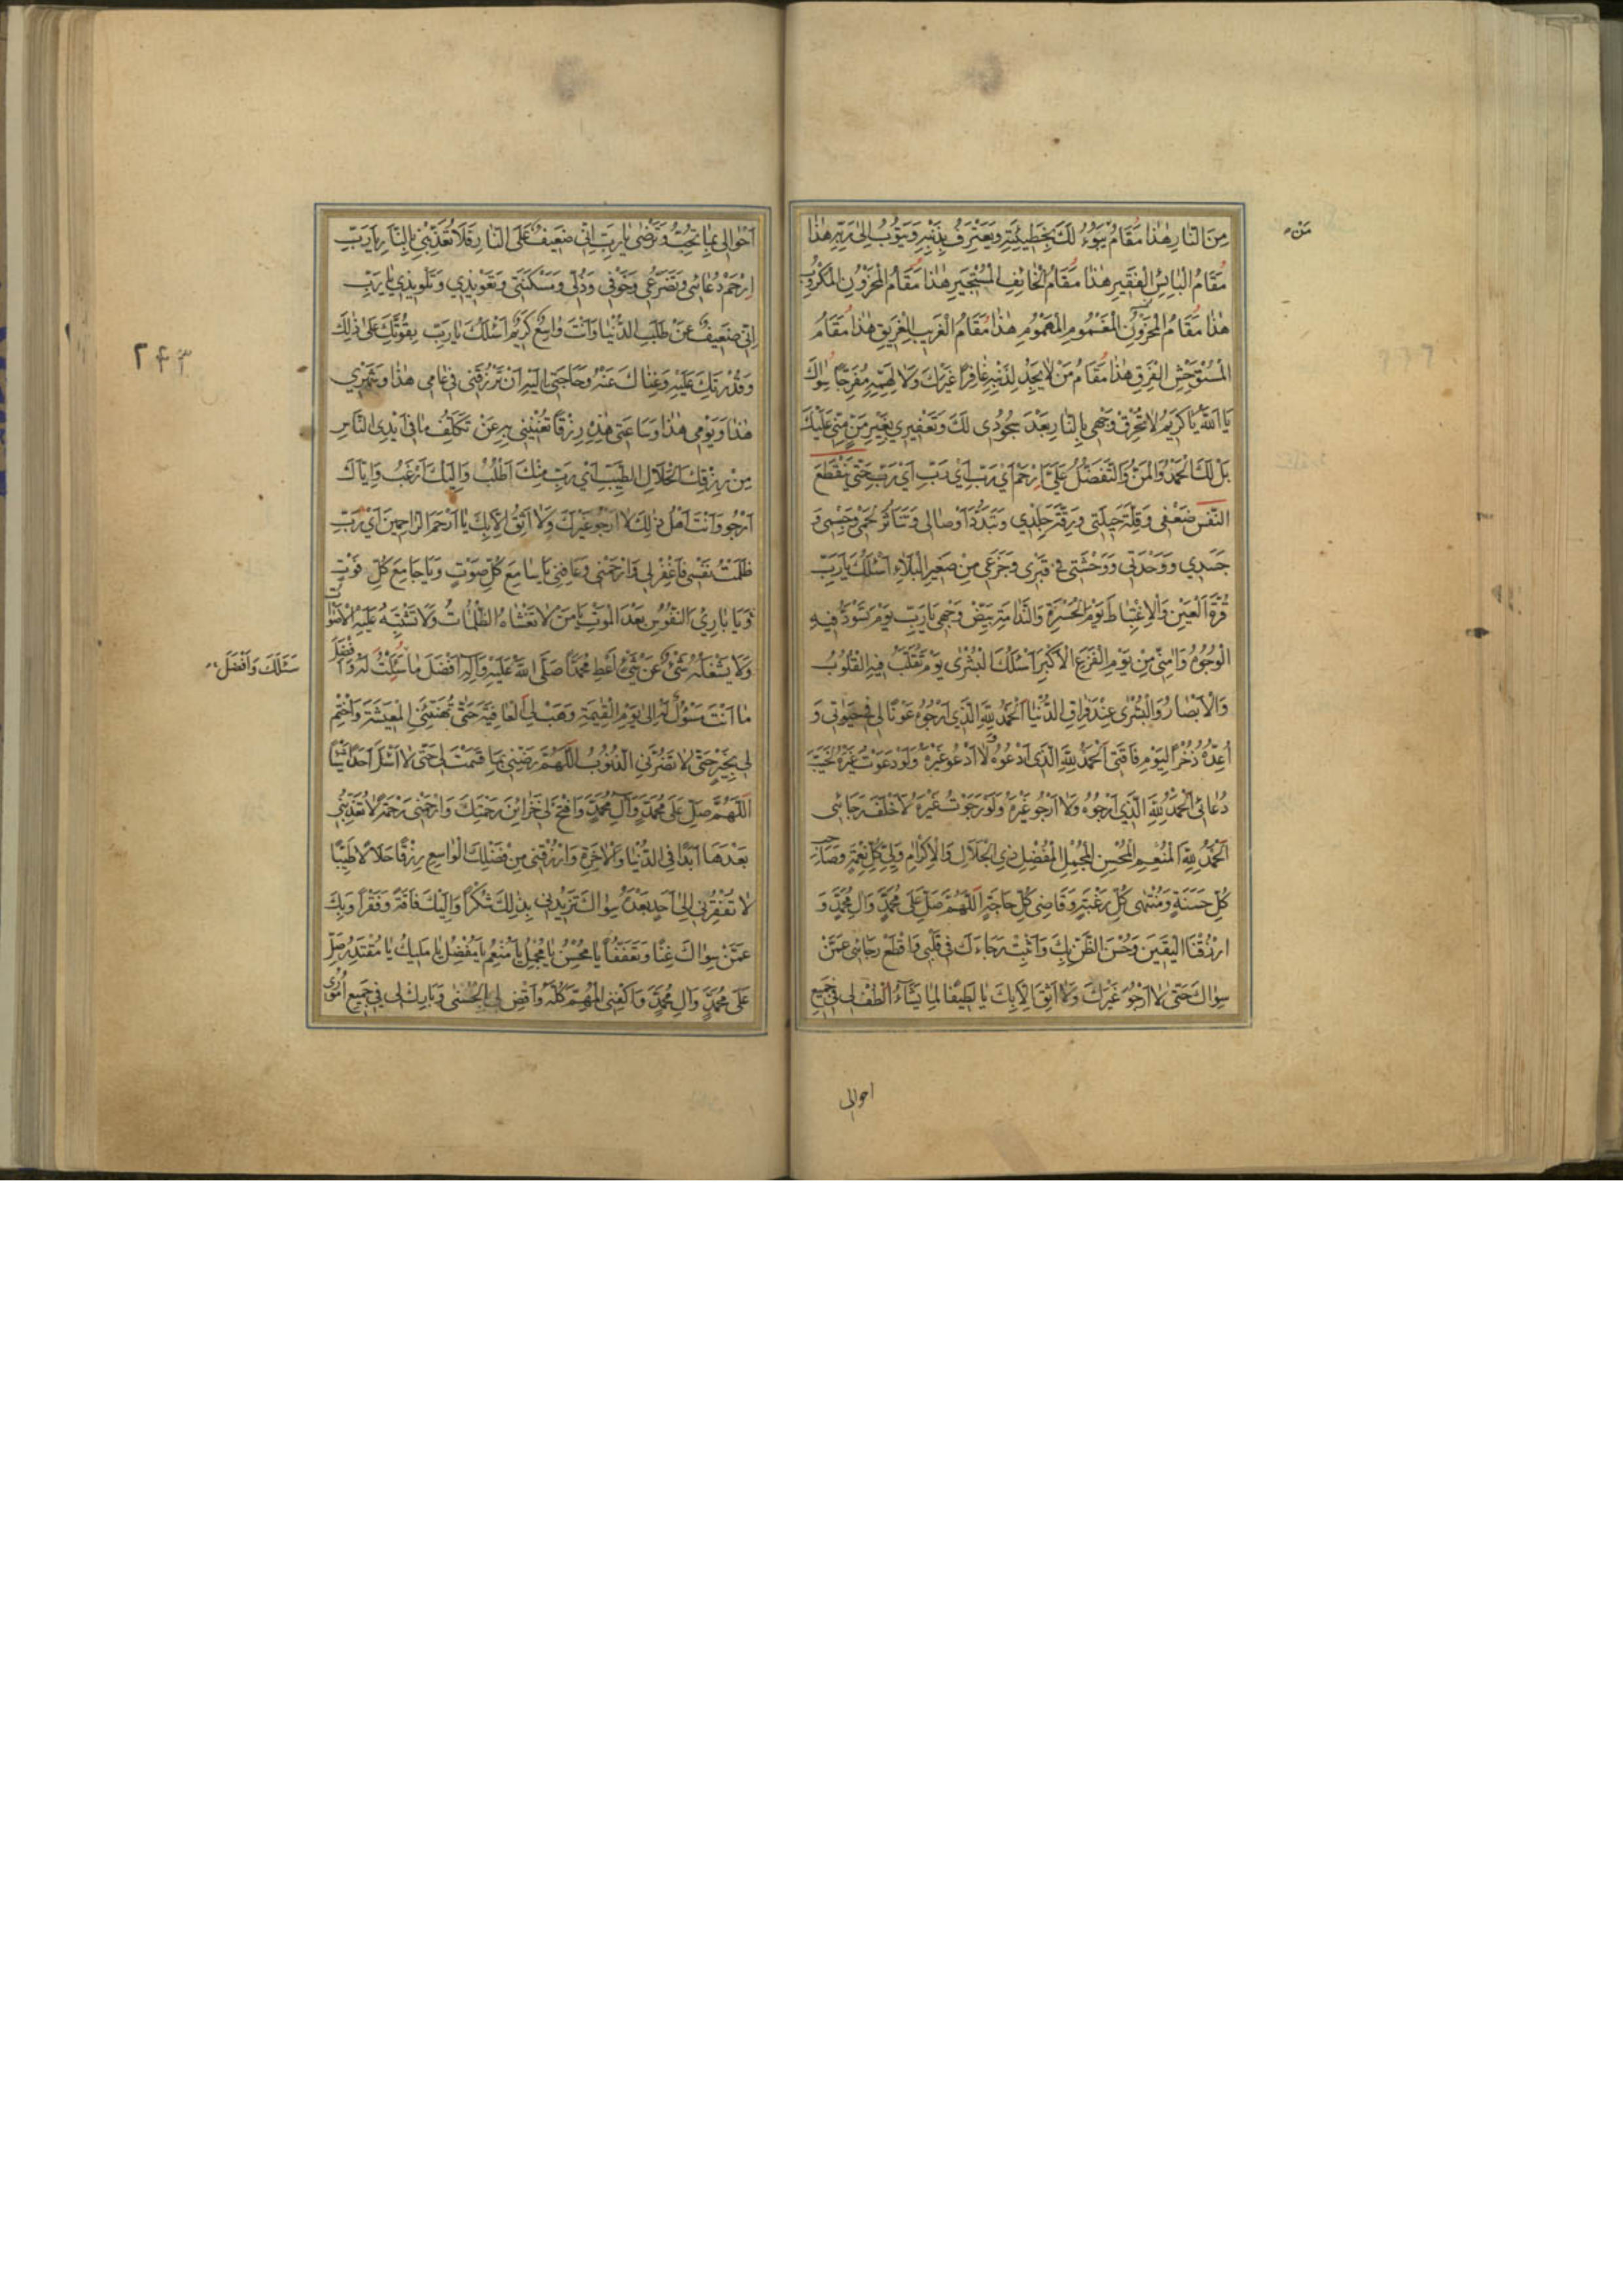 مِنَ النّارِ هٰذا مَقامُ يَبُوءُ لَكَ بِخَطيئَتِهِ وَيَعْتَرِفُ بِذَنْبِهِ وَيَتُوبُ اِلىٰ رَبِّهِ هٰذا
مَنْ
مَقامُ الْبائِسِ الْفَقيرِ هٰذا مَقامُ الْخائِفِ الْمُسْتَجيرِ هٰذا مَقامُ الْمَحْزُونِ الْمَكْرُوبِ
هٰذا مَقامُ الْمَحْزُونِ الْمَغْمُومِ الْمَهْمُومِ هٰذا مَقامُ الْغَريبِ الْغَريقِ هٰذا مَقامُ
الْمُسْتَوْحِشِ الْفَرِقِ هٰذا مَقامُ مَنْ لا يَجِدُ لِذَنْبِهِ غافِراً غَيْرَكَ وَلا لِهَمِّهِ مُفَرِّجاً سِواكَ
يا اَللّٰهُ يا كَريمُ لا تُحْرِقْ وَجْهي بِالنّارِ بَعْدَ سُجُودي لَكَ وَتَعْفيري بِغَيْرِ مَنٍّ مِنّي عَلَيْكَ
بَلْ لَكَ الْحَمْدُ وَالْمَنُّ وَالتَّفَضُّلُ عَلَيَّ اِرْحَمْ اَيْ رَبِّ اَيْ رَبِّ اَيْ رَبِّ حَتّىٰ يَنْقَطِعَ
النَّفَسُ ضَعْفي وَقِلَّةَ حيلَتي وَرِقَّةَ جِلْدي وَتَبَدُّدَ اَوْصالي وَتَناثُرَ لَحْمي وَجِسْمي وَ
جَسَدي وَوَحْدَتي وَوَحْشَتي في قَبْري وَجَزَعي مِنْ صَغيرِ الْبَلاءِ اَسْئَلُكَ يا رَبِّ
قُرَّةَ الْعَيْنِ وَالْاِغْتِباطَ يَوْمَ الْحَسْرَةِ وَالنَّدامَةِ بَيِّضْ وَجْهي يا رَبِّ يَوْمَ تَسْوَدُّ فيهِ
الْوُجُوهُ وَآمِنّي مِنْ يَوْمِ الْفَزَعِ الْاَكْبَرِ اَسْئَلُكَ الْبُشْرىٰ يَوْمَ تُقَلَّبُ فيهِ الْقُلُوبُ
وَالْاَبْصارُ وَالْبُشْرىٰ عِنْدَ فِراقِ الدُّنْيا اَلْحَمْدُ لِلّٰهِ الَّذي اَرْجُوهُ عَوْناً لي في حَيٰوتي وَ
اُعِدُّهُ ذُخْراً لِيَوْمِ فاقَتي اَلْحَمْدُ لِلّٰهِ الَّذي اَدْعُوهُ وَلا اَدْعُو غَيْرَهُ وَلَوْ دَعَوْتُ غَيْرَهُ لَخَيَّبَ
دُعائي اَلْحَمْدُ لِلّٰهِ الَّذي اَرْجُوهُ وَلا اَرْجُو غَيْرَهُ وَلَوْ رَجَوْتُ غَيْرَهُ لَاَخْلَفَ رَجائي
اَلْحَمْدُ لِلّٰهِ الْمُنْعِمِ الْمُحْسِنِ الْمُجْمِلِ الْمُفْضِلِ ذِي الْجَلالِ وَالْاِكْرامِ وَلِيِّ كُلِّ نِعْمَةٍ وَصاحِبِ
كُلِّ حَسَنَةٍ وَمُنْتَهىٰ كُلِّ رَغْبَةٍ وَقاضي كُلِّ حاجَةٍ اَللّٰهُمَّ صَلِّ عَلىٰ مُحَمَّدٍ وَآلِ مُحَمَّدٍ وَ
ارْزُقْنَا الْيَقينَ وَحُسْنَ الظَّنِّ بِكَ وَاَثْبِتْ رَجاءَكَ في قَلْبي وَاقْطَعْ رَجائي عَمَّنْ
سِواكَ حَتّىٰ لا اَرْجُوَ غَيْرَكَ وَلا اَثِقَ اِلّا بِكَ يا لَطيفاً لِما يَشاءُ اُلْطُفْ لي في جَميعِ
احوالى
اَحْوالي بِما تُحِبُّ وَتَرْضىٰ يا رَبِّ اِنّي ضَعيفٌ عَلَى النّارِ فَلا تُعَذِّبْني بِالنّارِ يا رَبِّ
اِرْحَمْ دُعائي وَتَضَرُّعي وَخَوْفي وَذُلّي وَمَسْكَنَتي وَتَعْويذي وَتَلْويذي يا رَبِّ
اِنّي ضَعيفٌ عَنْ طَلَبِ الدُّنْيا وَاَنْتَ واسِعٌ كَريمٌ اَسْئَلُكَ يا رَبِّ بِقُوَّتِكَ عَلىٰ ذٰلِكَ
٢۴٣
وَقُدْرَتِكَ عَلَيْهِ وَغِناكَ عَنْهُ وَحاجَتي اِلَيْهِ اَنْ تَرْزُقَني في عامي هٰذا وَشَهْري
هٰذا وَيَوْمي هٰذا وَساعَتي هٰذِهِ رِزْقاً تُغْنيني بِهِ عَنْ تَكَلُّفِ ما في اَيْدِي النّاسِ
مِنْ رِزْقِكَ الْحَلالِ الطَّيِّبِ اَيْ رَبِّ مِنْكَ اَطْلُبُ وَاِلَيْكَ اَرْغَبُ وَاِيّاكَ
اَرْجُو وَاَنْتَ اَهْلُ ذٰلِكَ لا اَرْجُو غَيْرَكَ وَلا اَثِقُ اِلّا بِكَ يا اَرْحَمَ الرّاحِمينَ اَيْ رَبِّ
ظَلَمْتُ نَفْسي فَاغْفِرْ لي وَارْحَمْني وَعافِني يا سامِعَ كُلِّ صَوْتٍ وَيا جامِعَ كُلِّ فَوْتٍ
وَيا بارِئَ النُّفُوسِ بَعْدَ الْمَوْتِ يا مَنْ لا تَغْشاهُ الظُّلُماتُ وَلا تَشْتَبِهُ عَلَيْهِ الْاَصْواتُ
وَلا يَشْغَلُهُ شَيْءٌ عَنْ شَيْءٍ اَعْطِ مُحَمَّداً صَلَّى اللّٰهُ عَلَيْهِ وَآلِهِ اَفْضَلَ ما سُئِلْتَ لَهُ وَاَفْضَلَ
سَئَلَكَ وَاَفْضَلَ
ما اَنْتَ مَسْؤُلٌ لَهُ اِلىٰ يَوْمِ الْقِيٰمَةِ وَهَبْ لِيَ الْعافِيَةَ حَتّىٰ تُهَنِّئَنِي الْمَعيشَةَ وَاخْتِمْ
لي بِخَيْرٍ حَتّىٰ لا تَضُرَّنِي الذُّنُوبُ اَللّٰهُمَّ رَضِّني بِما قَسَمْتَ لي حَتّىٰ لا اَسْئَلَ اَحَداً شَيْئاً
اَللّٰهُمَّ صَلِّ عَلىٰ مُحَمَّدٍ وَآلِ مُحَمَّدٍ وَافْتَحْ لي خَزائِنَ رَحْمَتِكَ وَارْحَمْني رَحْمَةً لا تُعَذِّبُني
بَعْدَها اَبَداً فِي الدُّنْيا وَالْآخِرَةِ وَارْزُقْني مِنْ فَضْلِكَ الْواسِعِ رِزْقاً حَلالاً طَيِّباً
لا تُفْقِرُني اِلىٰ اَحَدٍ بَعْدَهُ سِواكَ تَزيدُني بِذٰلِكَ شُكْراً وَاِلَيْكَ فاقَةً وَفَقْراً وَبِكَ
عَمَّنْ سِواكَ غِناً وَتَعَفُّفاً يا مُحْسِنُ يا مُجْمِلُ يا مُنْعِمُ يا مُفْضِلُ يا مَليكُ يا مُقْتَدِرُ صَلِّ
عَلىٰ مُحَمَّدٍ وَآلِ مُحَمَّدٍ وَاكْفِنِي الْمُهِمَّ كُلَّهُ وَاقْضِ لي بِالْحُسْنىٰ وَبارِكْ لي في جَميعِ اُمُوري